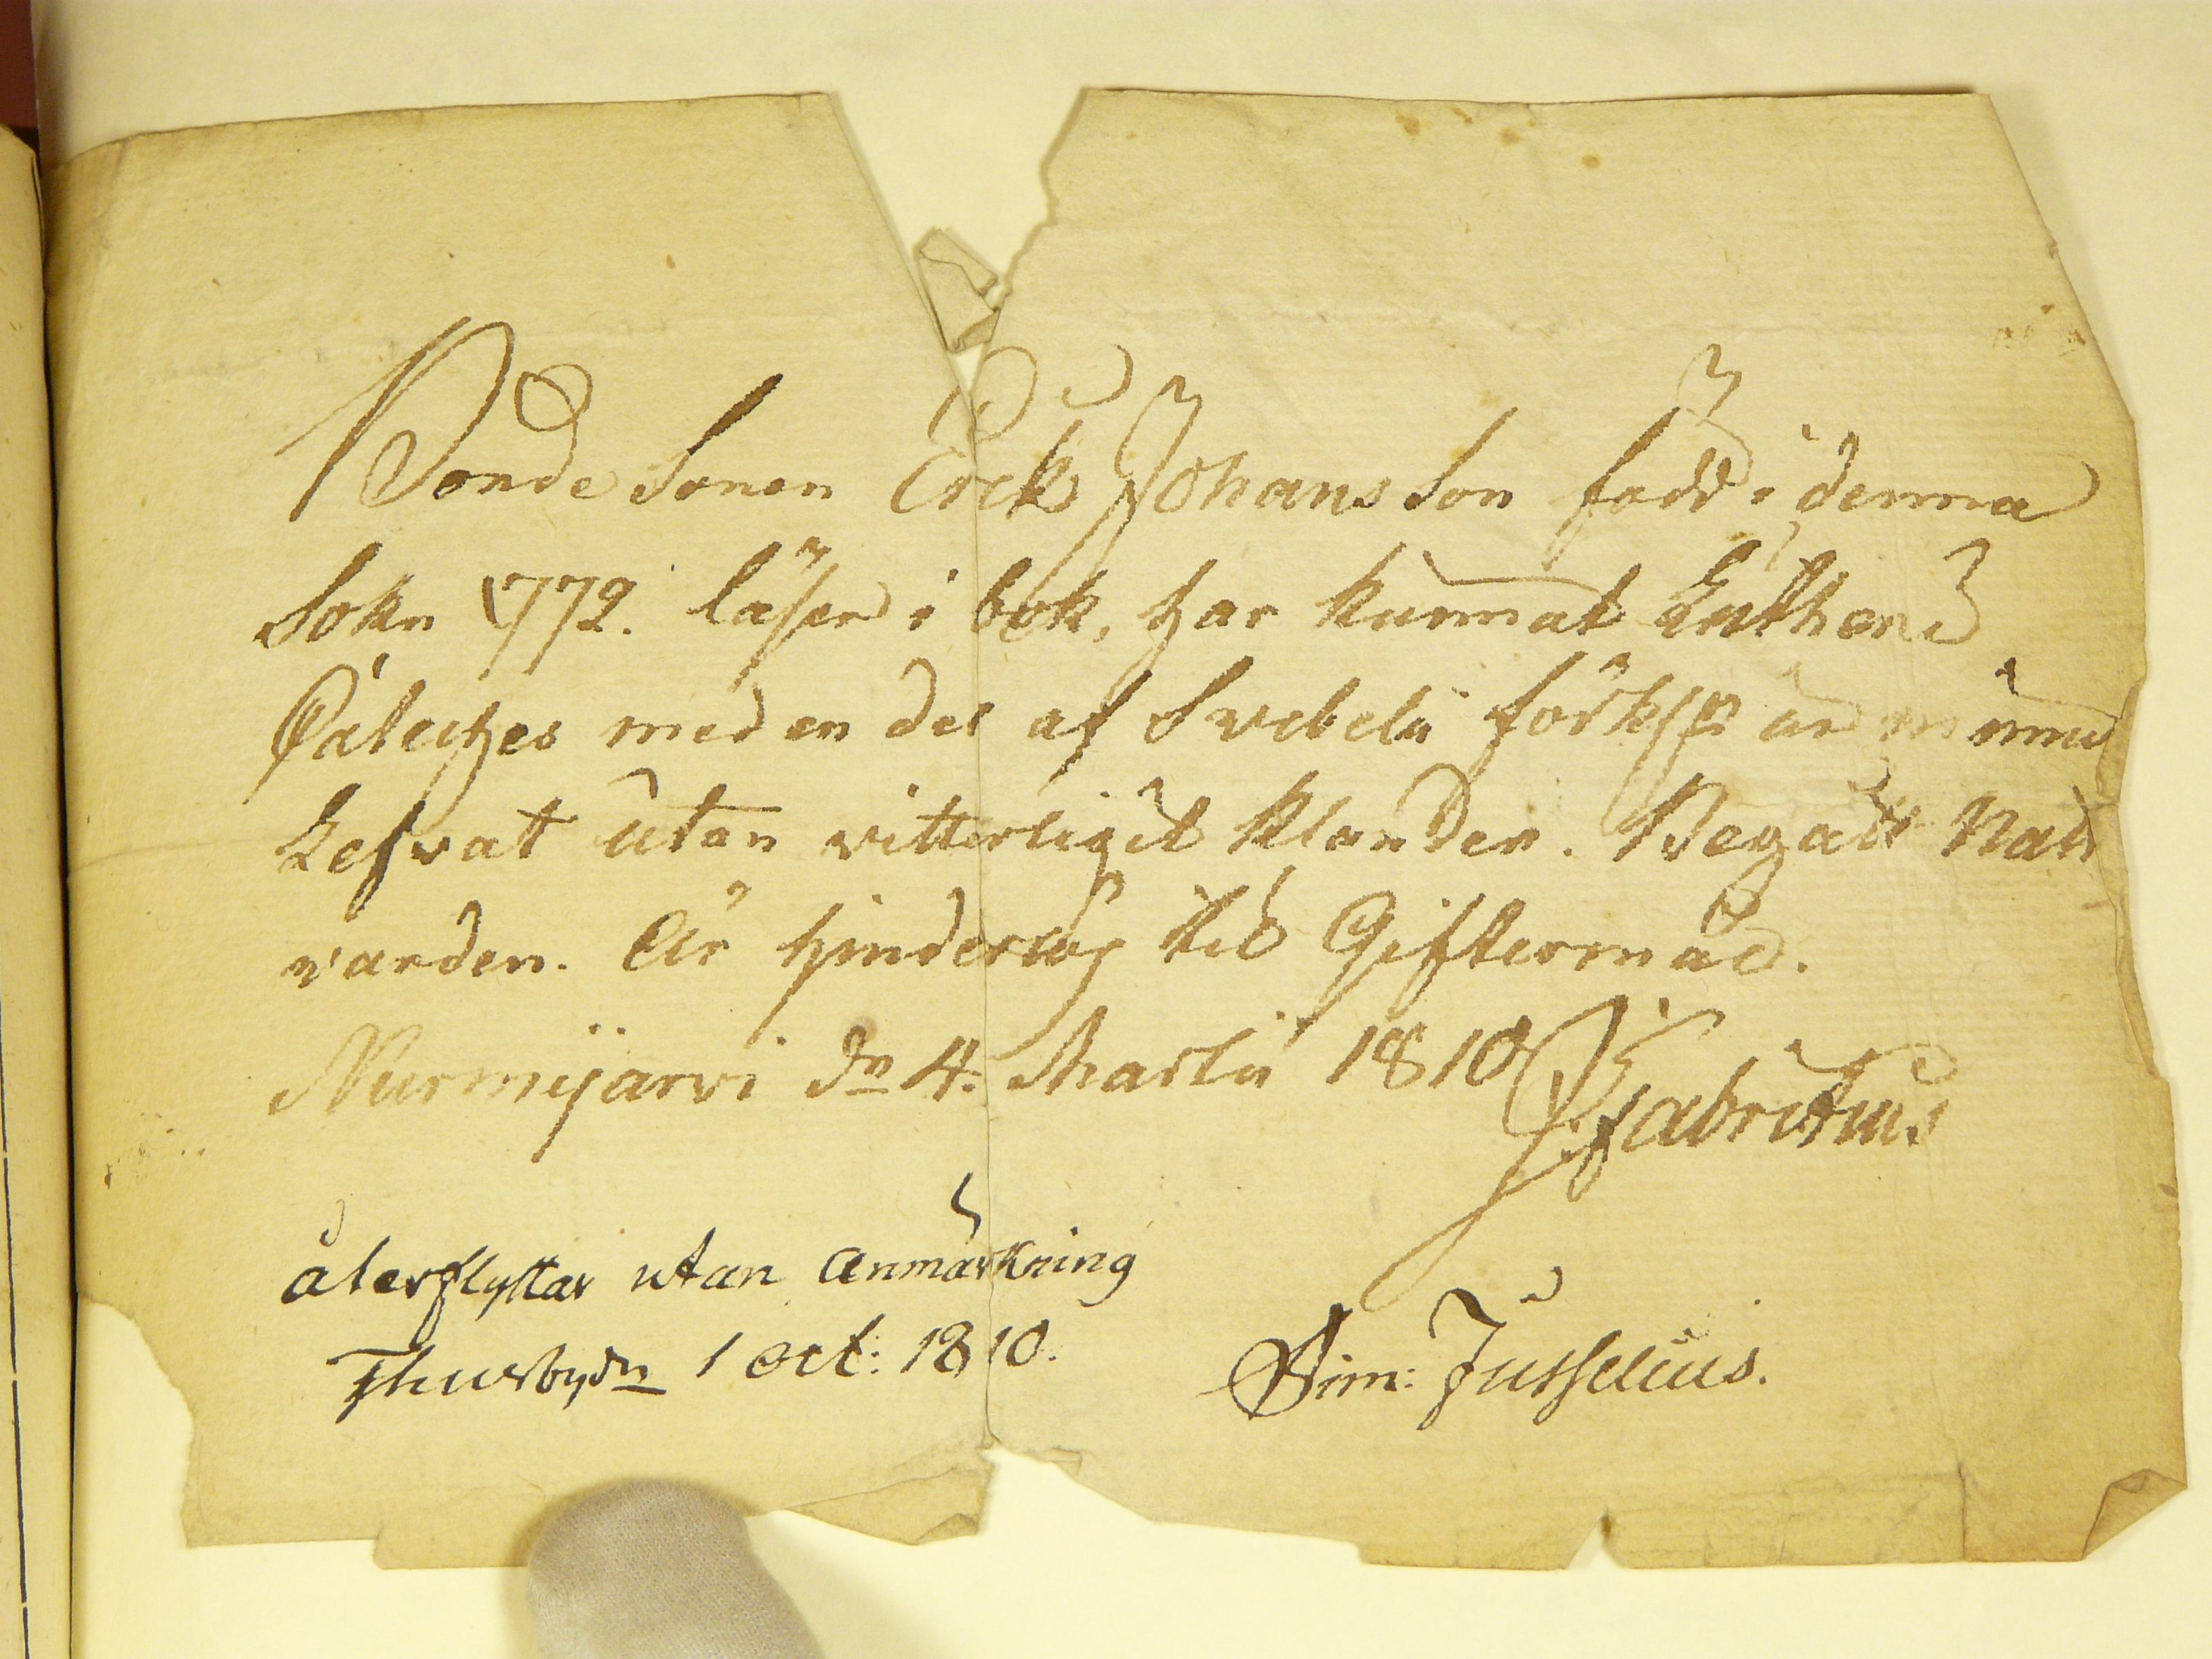 Bonde Sonen Erik Johans Son född i denna
Sokn 1772. läser i bok, har kunnat Luthers
Catechs med en del af Svebelii förkl: ur minne
Lefvat utan vitterligit klander. Begått Natt
varden. Är hinderlös til Giftermål.
Nurmijärvi dn 4. Martii 1810 Fabritius
återflyttar utan anmärkning
Thusby dn 1 Oct: 1810. Sim: Jusselius.